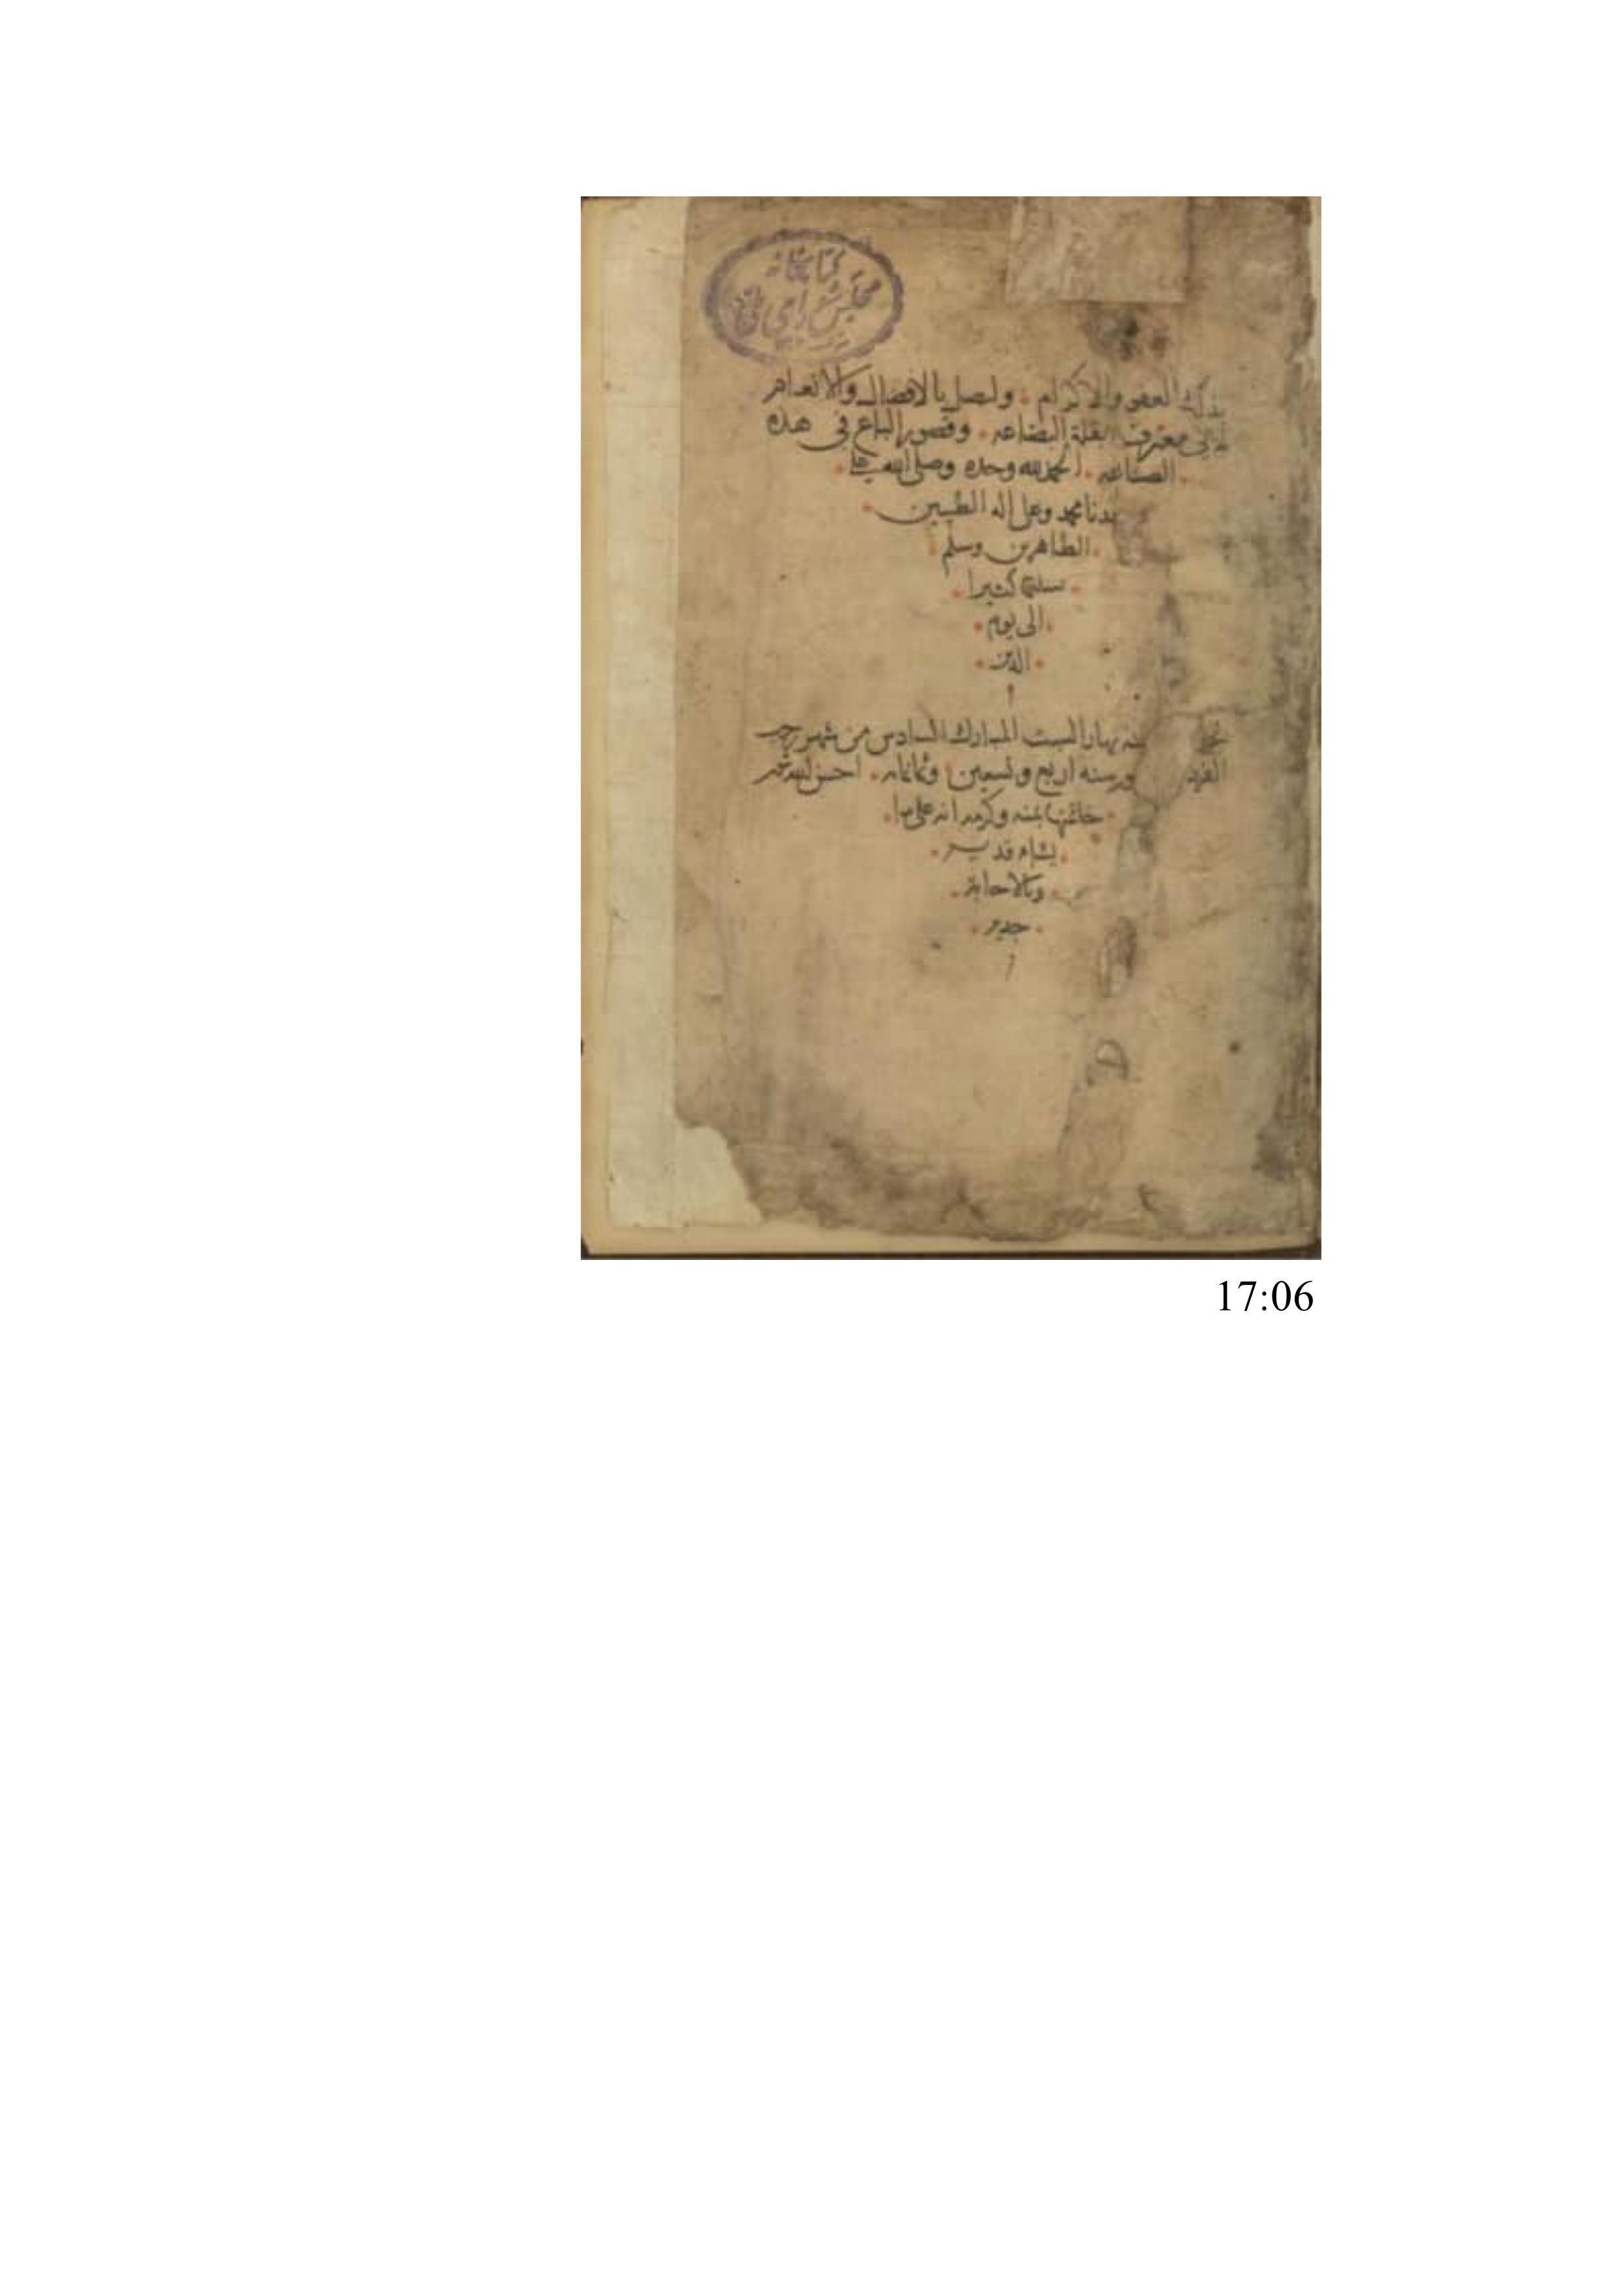 كتابخانه
مجلس شورای ملی
العفو والاكرام . وليصل بالافضال والانعام
معترف بقلة البضاعه . وقصور الباع فى هذه
الصناعه . الحمد لله وحده وصلى الله على
سيدنا محمد وعلى اله الطيبين
الطاهرين وسلم
تسليما كثيرا
الى يوم
الدين
نهار السبت المبارك السادس من شهر رجب
الفرد سنه اربع وتسعين وثمانمايه . احسن الله
خاتمتها بمنه وكرمه انه على ما
يشاء قدير
وبالاجابة
جدير
17:06